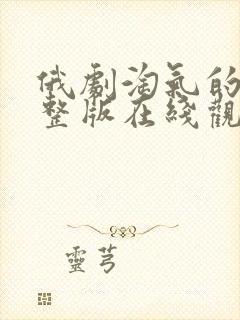 俄劇淘氣的
整版在綫觀
靈芎